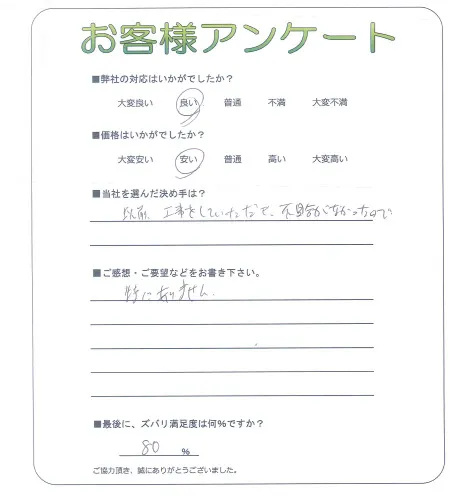 お客様アンケート
■弊社の対応はいかがでしたか？
大変良い 良い 普通 不満 大変不満
■価格はいかがでしたか？
大変安い 安い 普通 高い 大変高い
■当社を選んだ決め手は？
以前、工事をしていただき、不具合がなかったので
■ご感想・ご要望などをお書き下さい。
特にありません。
■最後に、ズバリ満足度は何%ですか？
80 %
ご協力頂き、誠にありがとうございました。